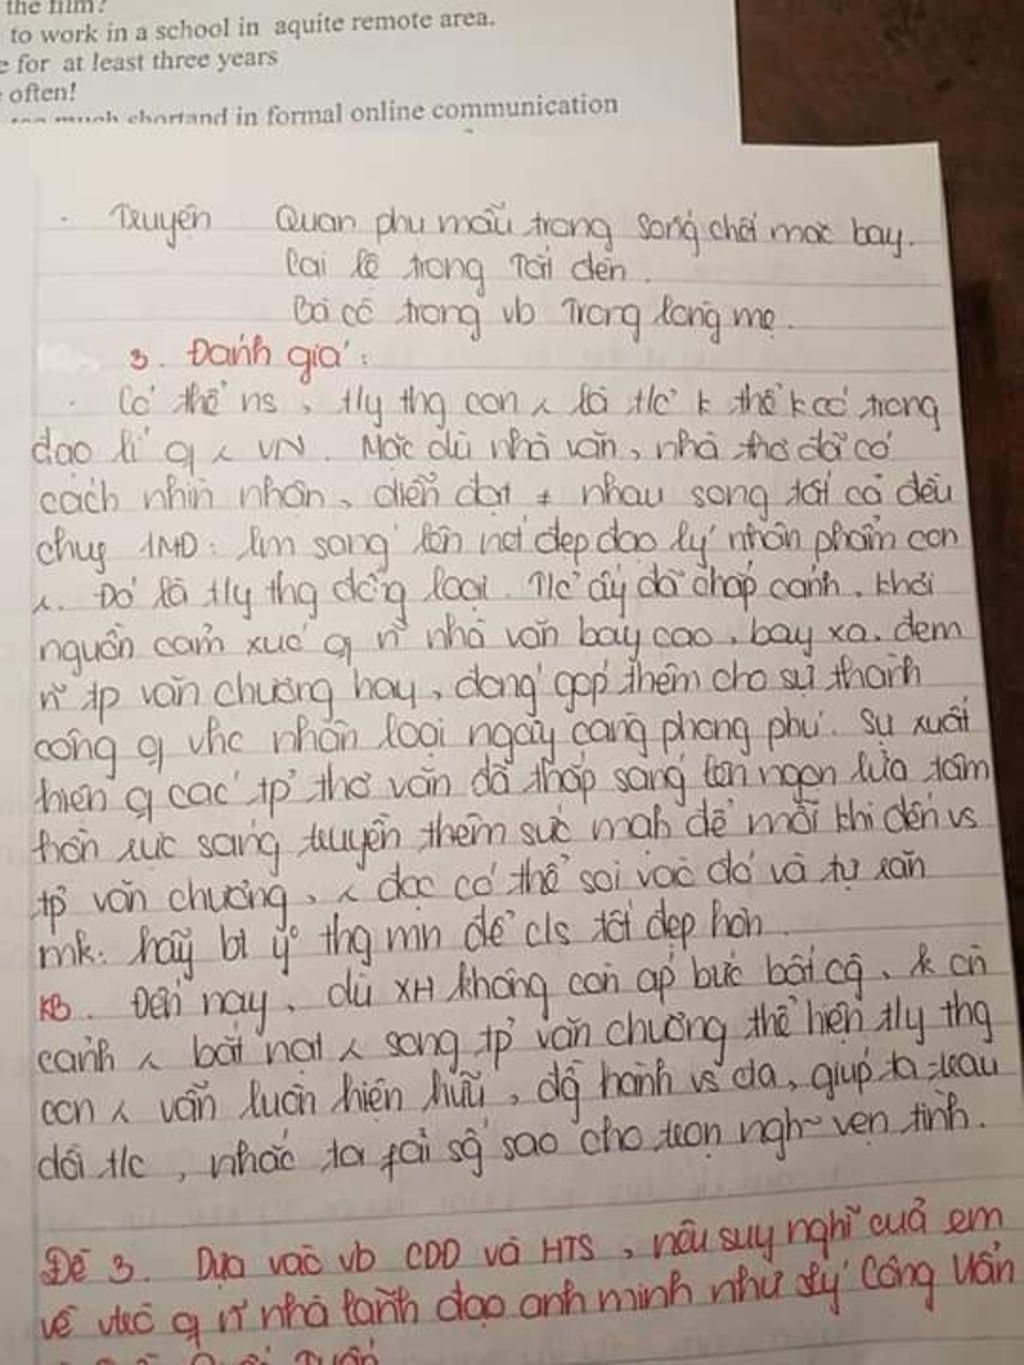 the film?
to work in a school in aquite remote area.
e for at least three years
often!
much shortand in formal online communication
- Truyện Quan phụ mẫu trong Sống chết mặc bay.
Cai lệ trong Tắt đèn.
Bà cô trong vb Trong lòng mẹ.
3. Đánh giá:
- Có thể ns, tly thg con λ là t/c k thể k có trong
đạo lí q λ VN. Mặc dù nhà văn, nhà thơ đã có
cách nhìn nhận, diễn đạt ≠ nhau song tất cả đều
chug 1MĐ: làm sáng lên nét đẹp đạo lý nhân phẩm con
λ. Đó là tly thg đồng loại. T/c ấy đã chắp cánh, khơi
nguồn cảm xúc q n~ nhà văn bay cao, bay xa, đem
n~ tp văn chương hay, đóng góp thêm cho sự thành
công q vhc nhân loại ngày càng phong phú. Sự xuất
hiện q các tp thơ văn đã thắp sáng lên ngọn lửa tâm
hồn rực sáng truyền thêm sức mạh để mỗi khi đến vs
tp văn chương, λ đọc có thể soi vào đó và tự răn
mk: hãy bt y thg mn để c/s tốt đẹp hơn.
KB. Đến nay, dù XH không còn áp bức bất cô, k cn
cảnh λ bắt nạt λ song tp văn chương thể hiện tly thg
con λ vẫn luôn hiện hữu, đồg hành vs cta, giúp ta trau
dồi t/c, nhắc ta fải sốg sao cho trọn ngh~ vẹn tình.
Đề 3. Dựa vào vb CDD và HTS, nêu suy nghĩ của em
về vtrò q n~ nhà lãnh đạo anh minh như Lý Công Uẩn
Quốc Tuấn